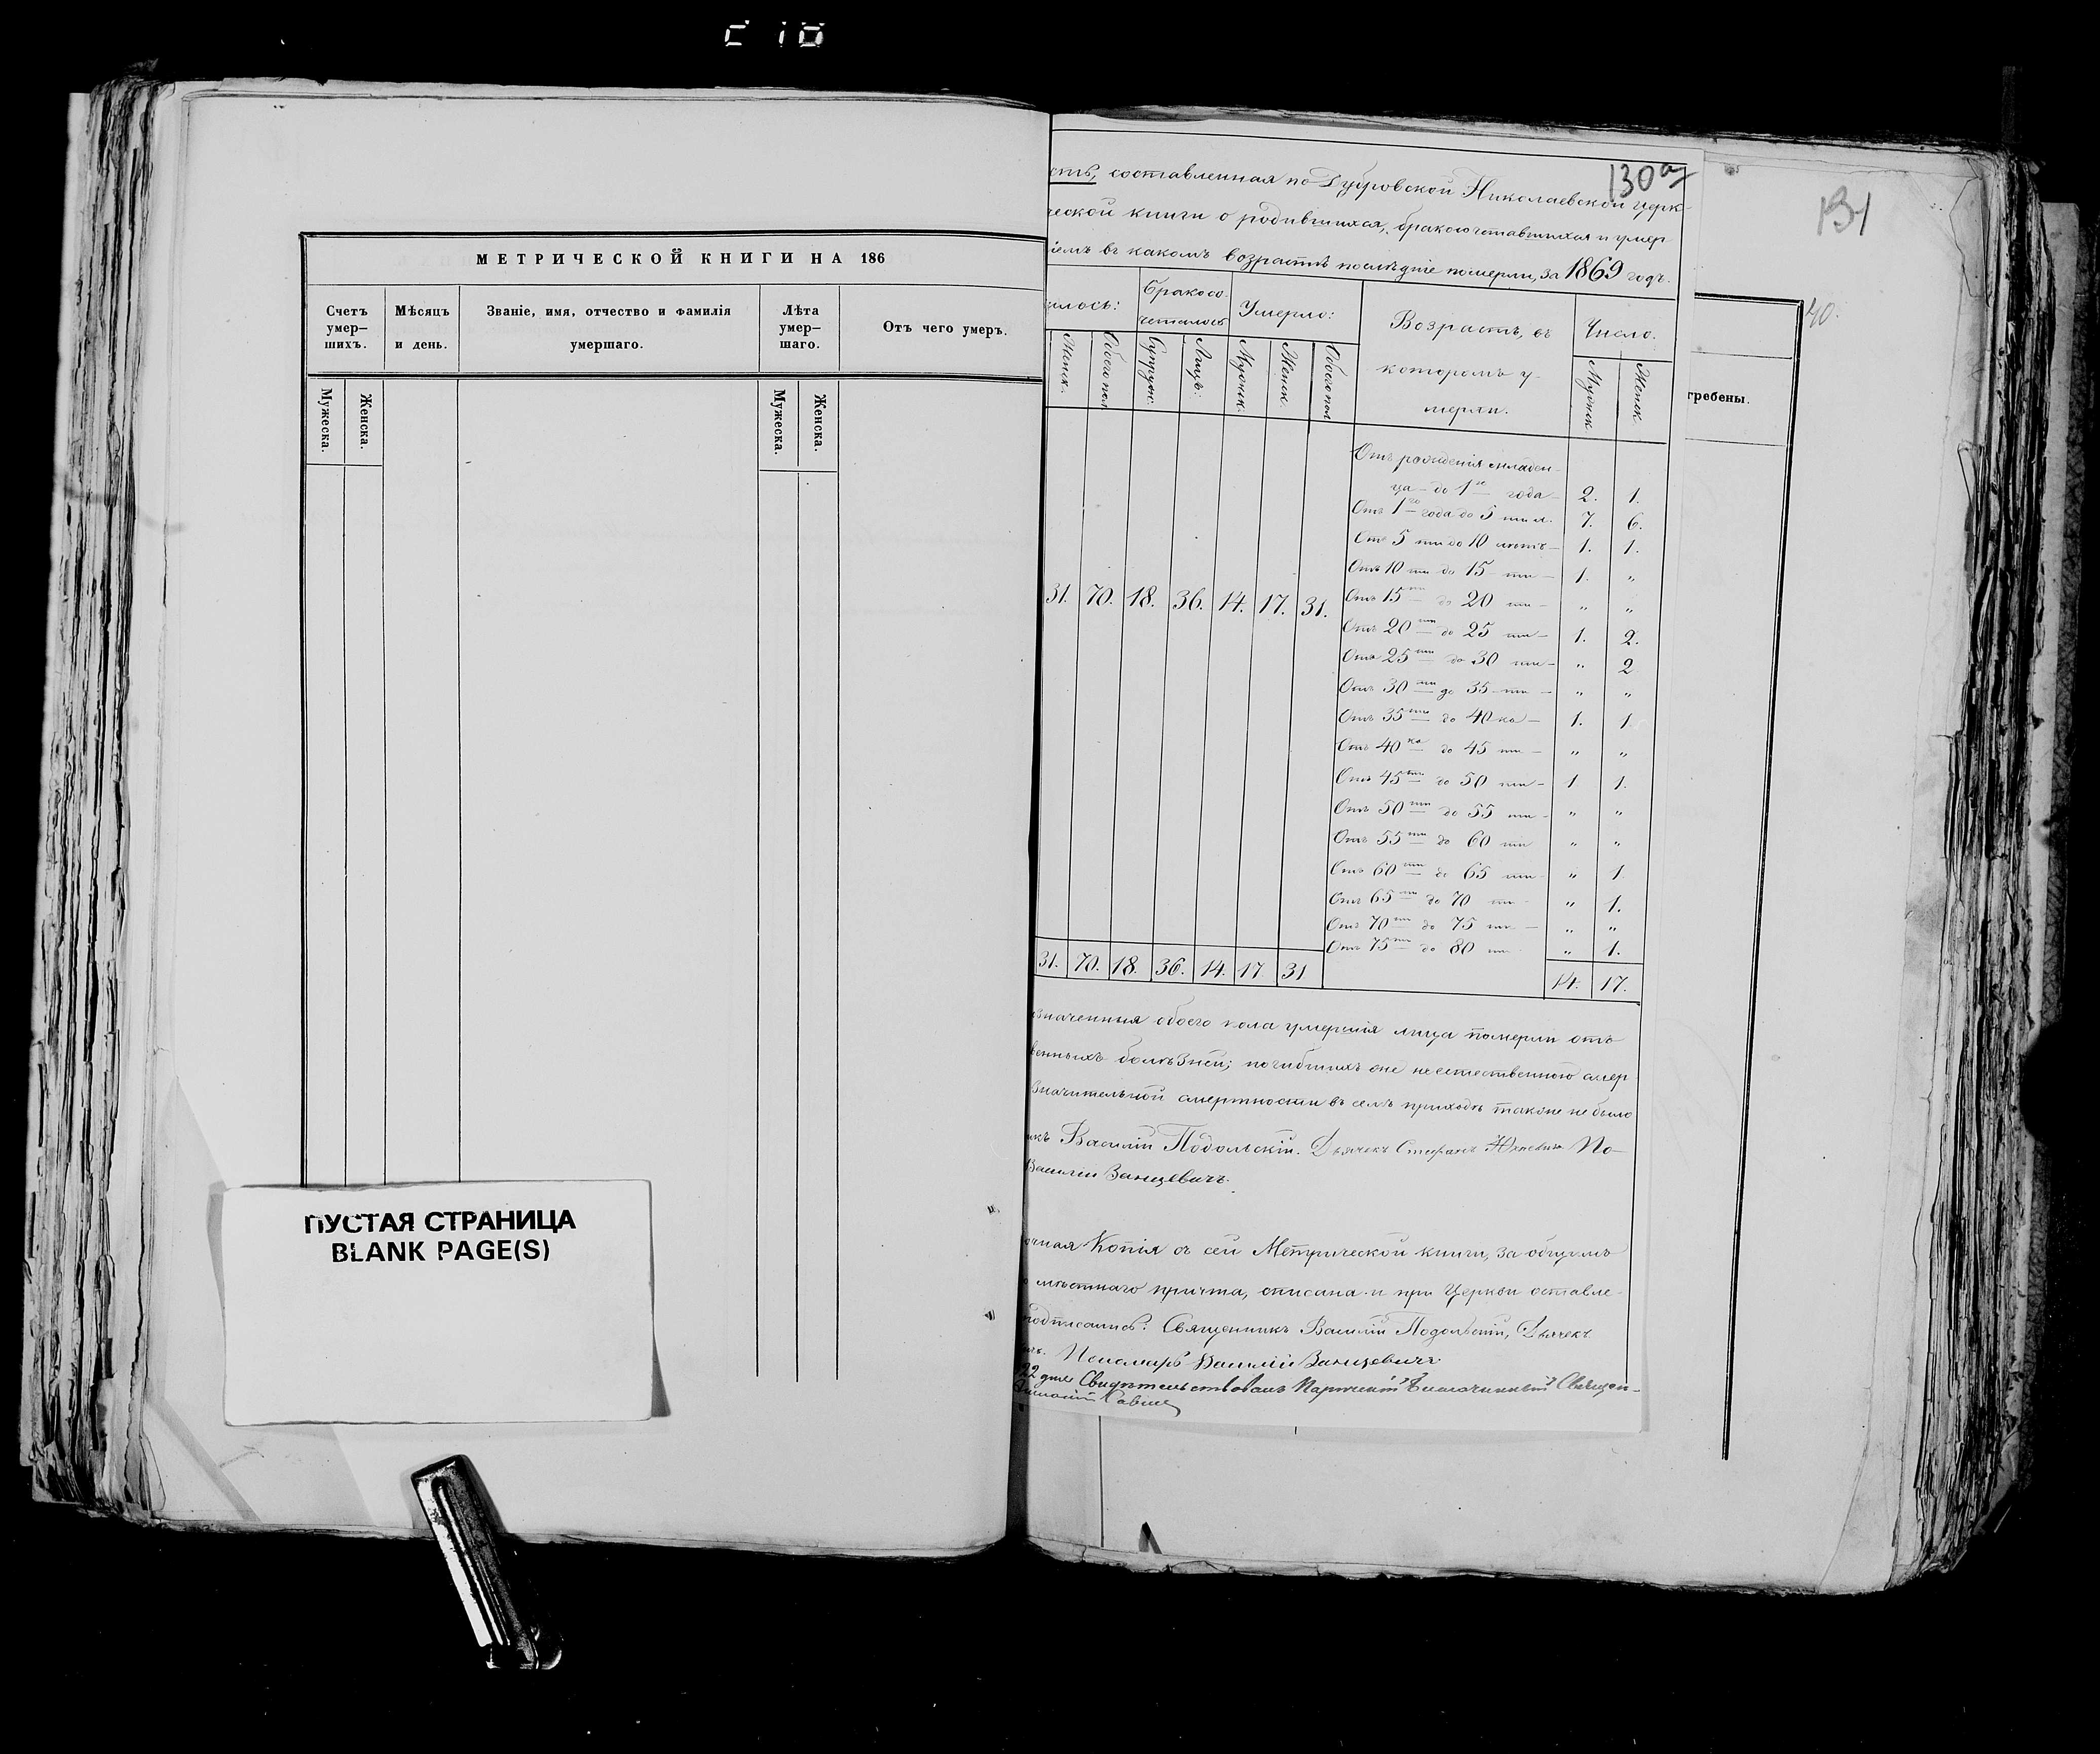 МЕТРИЧЕСКОЙ КНИГИ НА 186
Счетъ умер–шихъ.
Мѣсяцъ и день.
Званіе, имя, отчество и фамилія умершаго.
Лѣта умер–шаго.
Отъ чего умеръ.
Мужеска.
Женска.
Мужеска.
Женска.
ПУСТАЯ СТРАНИЦА
BLANK PAGE(S)
130а
131
40.
гребены.
сть, составленная по Дубровской Николаевской церк
ческой книги о родившихся, бракосочетавшихся и умер
іемъ въ какомъ возрастѣ послѣдніе померли, за 1869 годъ.
илось:
Бракосо-
четалось
Умерло:
Возрастъ, въ
которомъ у-
мерли.
Число.
Женск.
Обоего пол
Супруж.
Лицъ.
Мужск.
Женск.
Обоего пол
Мужск
Женск
Отъ рожденія младен-
ца – до 1го года – 2. 1.
Отъ 1го года до 5 ти л. 7. 6.
Отъ 5 ти до 10 лѣтъ – 1. 1.
Отъ 10 ти до 15 – ти – 1. „
Отъ 15ти до 20 ти – „ „
31. 70. 18. 36. 14. 17. 31.
Отъ 20ти до 25 ти – 1. 2.
Отъ 25ти до 30 ти – „ 2
Отъ 30ти до 35 – ти – „ „
Отъ 35ти до 40 ка – 1. 1
Отъ 40ка до 45 ти – „ „
Отъ 45ти до 50 ти – 1 1.
Отъ 50ти до 55 ти – „ „
Отъ 55ти до 60 ти „ „
Отъ 60ти до 65 ти „ 1.
Отъ 65ти до 70 ти – „ 1.
Отъ 70ти до 75 ти – „ „
Отъ 75ти до 80 ти „ 1.
31. 70. 18. 36. 14. 17 31 14. 17.
значенныя обоего пола умершія лица померли отъ
венныхъ болѣзней; погибшихъ же неестественною смер
значительной смертности въ семъ приходѣ также не было
икъ Василій Подольскій. Дьячекъ Стефанъ По–
Василій Занцевичъ.
очная Копія съ сей Метрической книги, за общимъ
мѣстнаго причта, списана и при Церкви оставле-
подписались: Священникъ Василій Подольскій, Дьячекъ
Пономарь Василій Занцевичъ
22 дня Свидѣтельствовалъ Благочинный Священ–